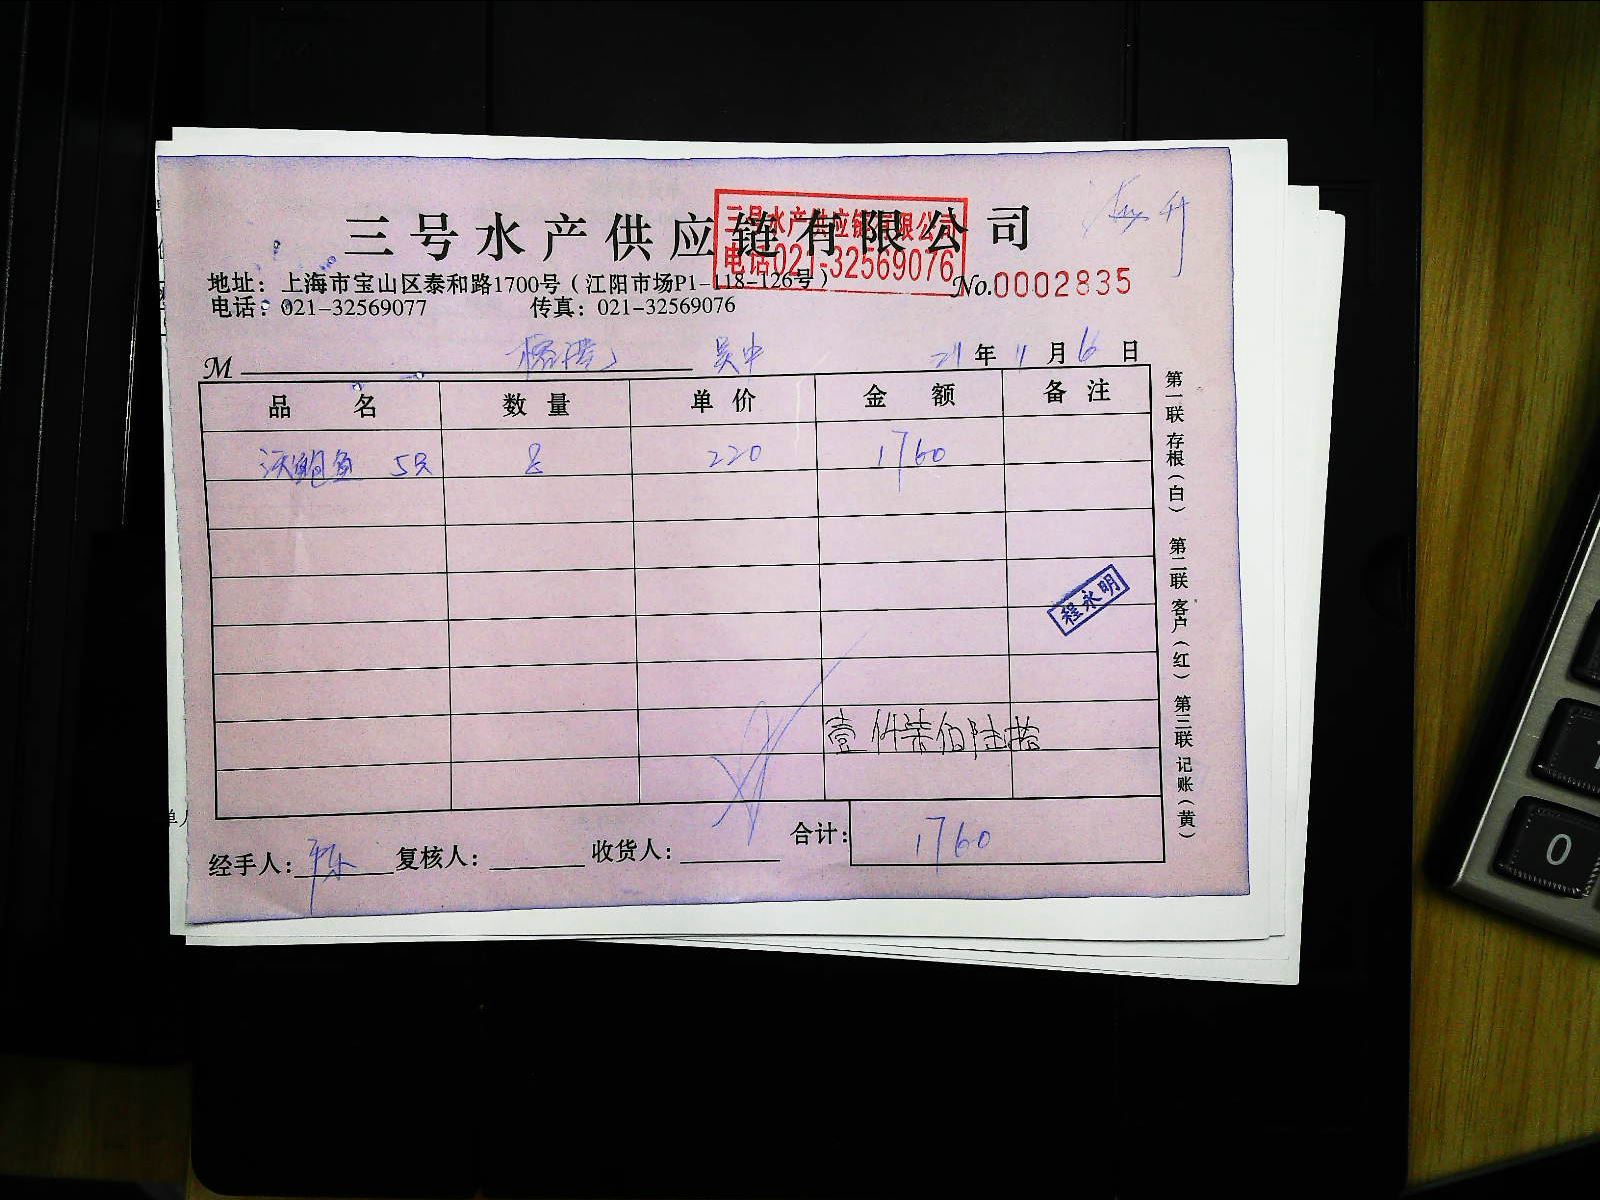 三号水产供应链有限公司
三号水产供应链有限公司
电话021-32569076
地址：上海市宝山区泰和路1700号（江阳市场P1-118-126号）
No.0002835
电话：021-32569077 传真：021-32569076
M 吴中 21年11月16日
品名 数量 单价 金额 备注
鲍鱼 5只 8 220 1760
程永明
壹仟柒佰陆拾
合计：1760
经手人： 复核人： 收货人：
第一联 存根（白） 第二联 客户（红） 第三联 记账（黄）
0